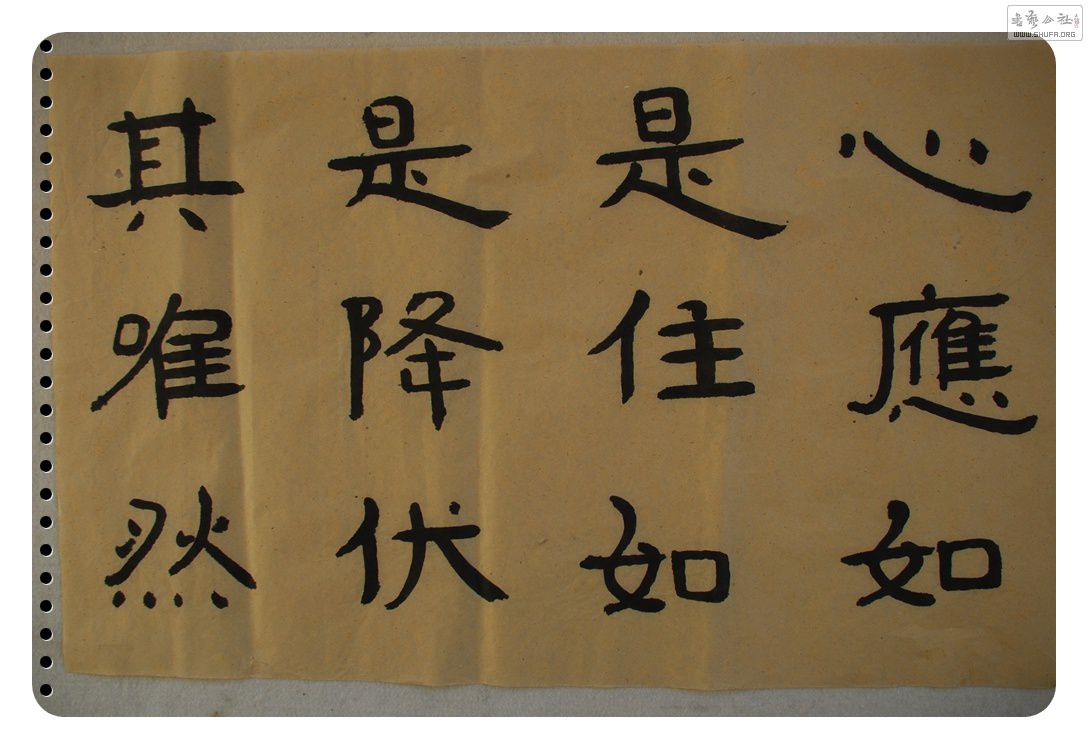 心應如
是住如
是降伏
其唯然
WWW.SHUFA.ORG